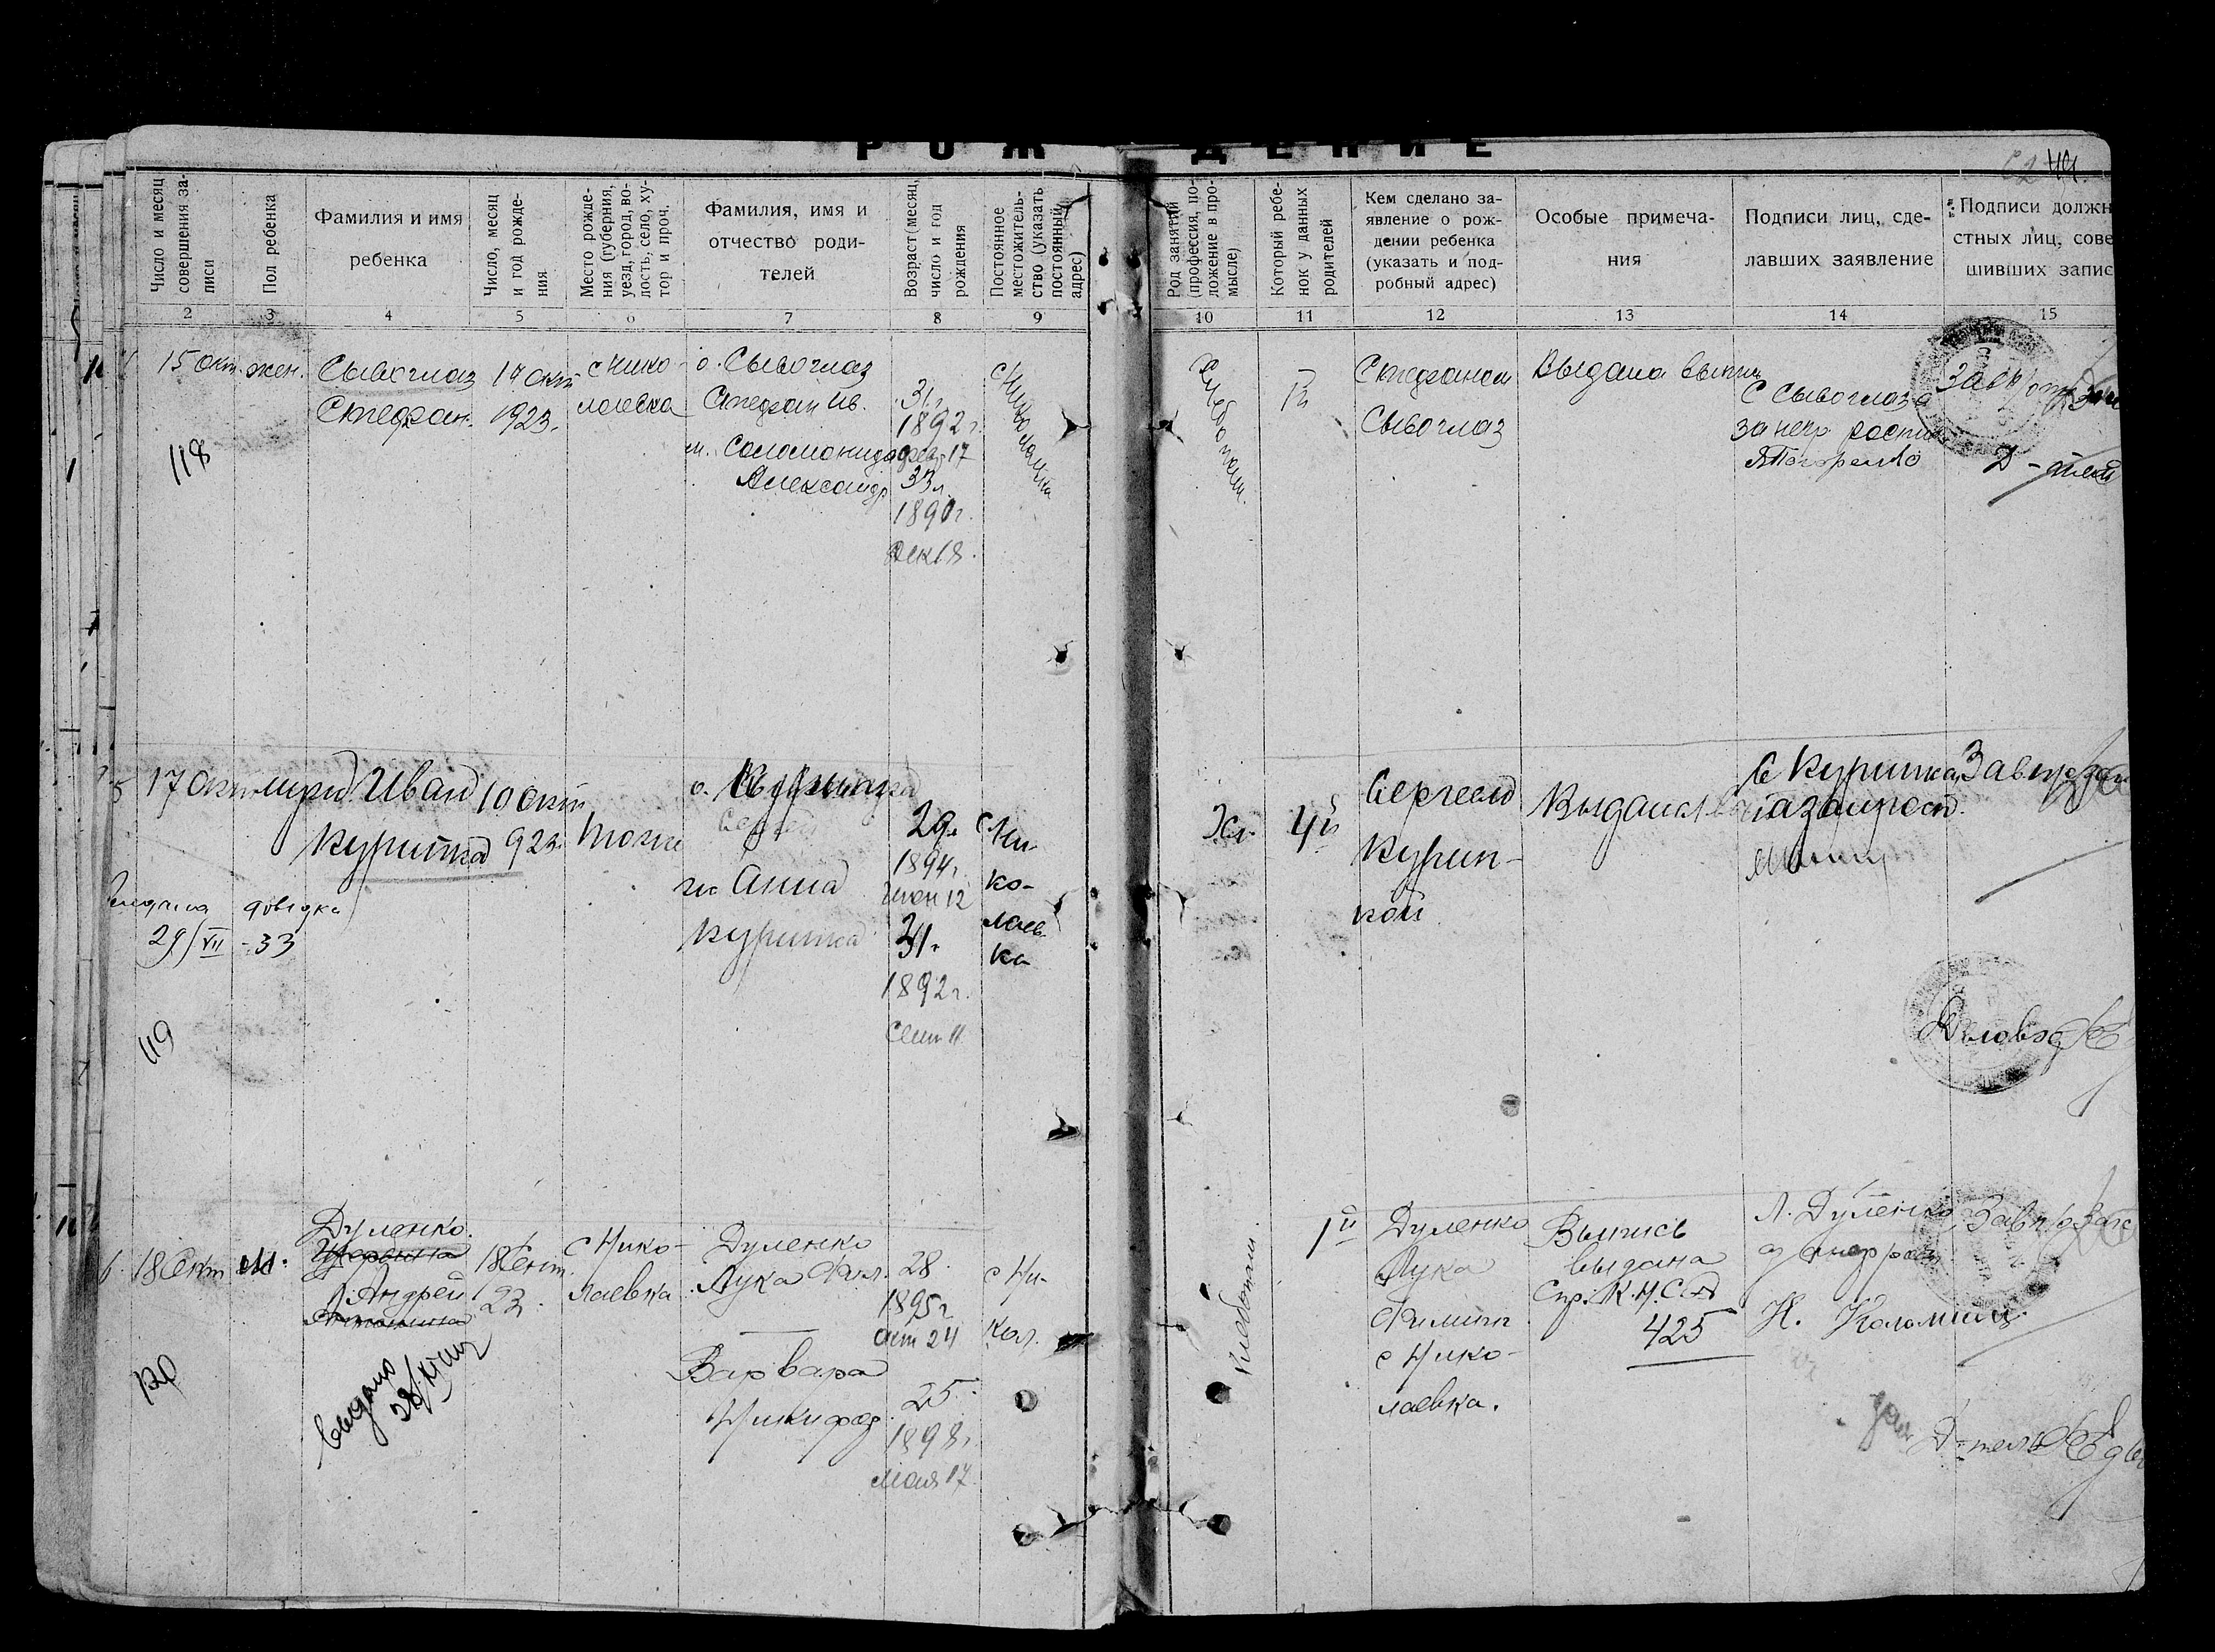 РОЖДЕНИЕ
Число и месяц
совершения за-
писи
Пол ребенка
Фамилия и имя
ребенка
Число, месяц
и год рожде-
ния
Место рожде-
ния (губерния,
уезд, город, во-
лость, село, ху-
тор и проч.
Фамилия, имя и
отчество роди-
телей
Возраст (месяц,
число и год
рождения
Постоянное
местожитель-
ство (указать
постоянный
адрес)
Род занятий
(профессия, по-
ложение в про-
мысле)
Который ребе-
нок у данных
родителей
Кем сделано за-
явление о рож-
дении ребенка
(указать и под-
робный адрес)
Особые примеча-
ния
Подписи лиц, сде-
лавших заявление
Подписи долж
стных лиц, сове
шивших запис
2 3 4 5 6 7 8 9 10 11 12 13 14 15
15 окт. жен.
118
Сывоглаз
Стефан.
14 окт
1923.
с Нико-
лаевка
о. Сывоглаз
Стефан Ив.
м. Соломонида
Александр
31 г.
1892 г.
фев 17
33 л.
1890 г.
дек 18.
с Николаевка
Хлебопаш.
Стефаном
Сывоглаз
Выдана выпись
С Сывоглаза
за негр роспи
17 окт
Выдана довідка
29/VII-33
119
Иван
Куритка
10 окт
923.
тоже
о. Куритка
Сергей
м Анна
Куритка
29 л
1894 г.
июн 12
31 г
1892 г.
Сент 11
с Ни-
ко-
лаев-
ка
Хл.
4й
Сергеем
Курит-
кой
Выдана
С Куритка
18 Окт м.
120
Дуленко.
Андрей
выдано
18 Окт.
23.
с Нико-
лаевка
Дуленко
Лука Фил.
Варвара
Никифор.
28
1895 г
окт 24
25
1898 г
мая 17
с Ни-
кол.
Хлебопаш.
1й
Дуленко
Лука
Филип
с Нико-
лаевка.
Выпись
выдана
Спр. К.Н.С.
425
Л. Дуленко
Н. Коломиец